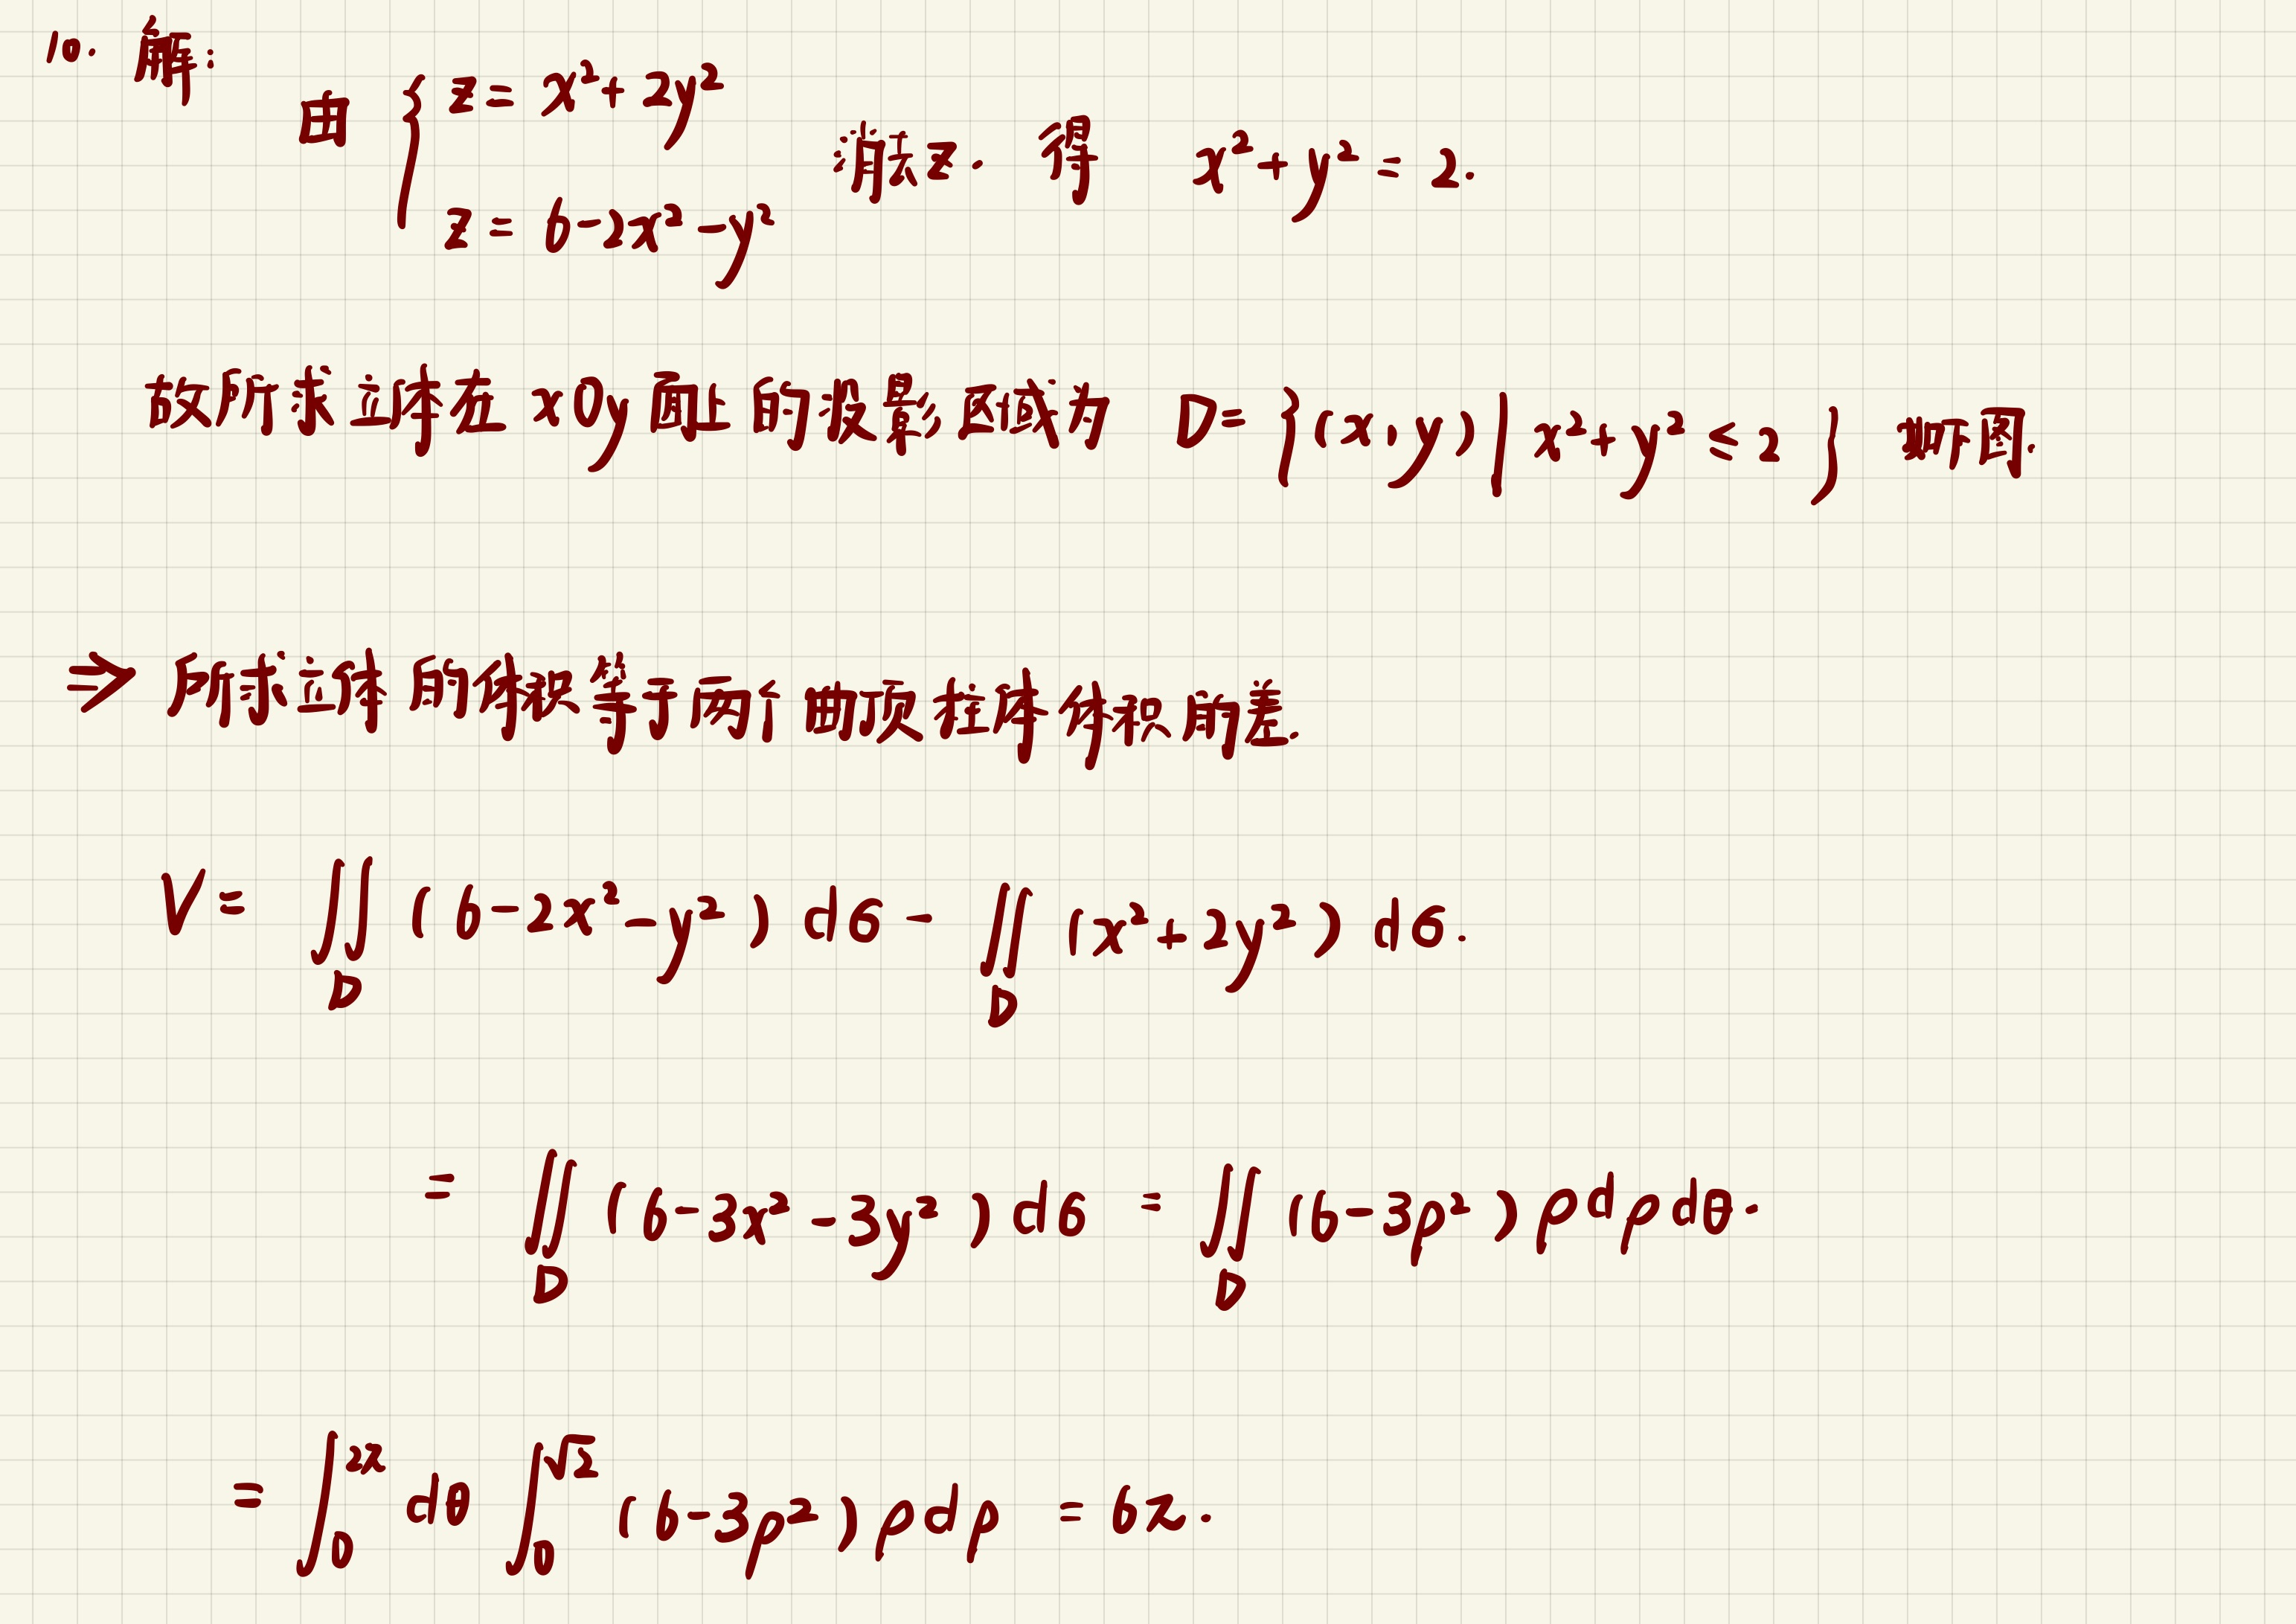 10. 解:
由 { z = x² + 2y²
z = 6 - 2x² - y²
消去z. 得 x² + y² = 2.
故所求立体在 xOy 面上的投影区域为 D = {(x,y) | x² + y² ≤ 2} 如下图.
⇒ 所求立体的体积等于两个曲顶柱体体积的差.
V = ∬_D (6 - 2x² - y²) dσ - ∬_D (x² + 2y²) dσ.
= ∬_D (6 - 3x² - 3y²) dσ = ∬_D (6 - 3ρ²) ρ dρ dθ.
= ∫₀^{2π} dθ ∫₀^{√2} (6 - 3ρ²) ρ dρ = 6π.